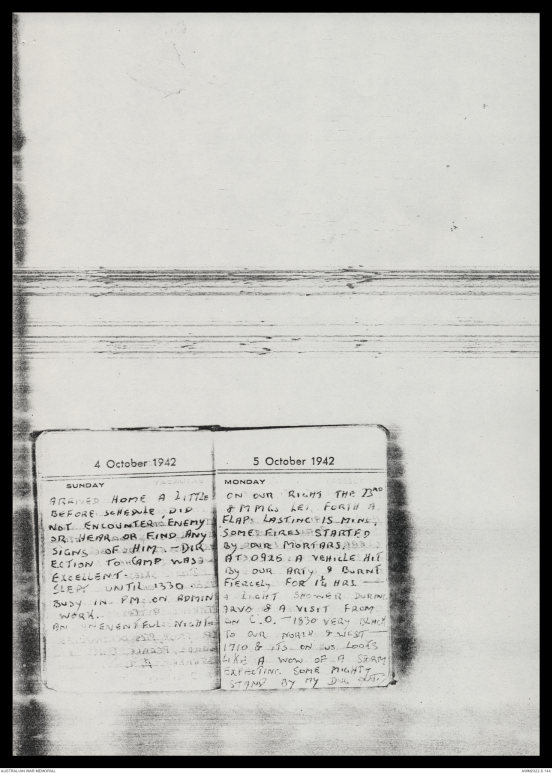 4 October 1942
SUNDAY
ARRIVED HOME A LITTLE
BEFORE SCHEDULE, DID
NOT ENCOUNTER ENEMY
OR HEAR OR FIND ANY
SIGNS OF HIM - DIR
ECTION TO CAMP WAS
EXCELLENT.
SLEPT UNTIL 1330
BUSY IN PM ON ADMIN
WORK.
AN UNEVENTFUL NIGHT
5 October 1942
MONDAY
ON OUR RIGHT THE 13RD
& MMGs LET FORTH A
FLAP LASTING 15 MINS,
SOME FIRES STARTED
BY OUR MORTARS
AT 0925 A VEHICLE HIT
BY OUR ARTY & BURNT
FIERCELY FOR 1½ HRS -
A LIGHT SHOWER DURIN
ARVO & A VISIT FROM
C.O. - 1830 VERY BLACK
TO OUR NORTH & WEST
1710 & ITS ON US LOOKS
LIKE A WOW OF A STORM
EXPECTING SOME MIGHTY
STAND BY MY DUG OUT
AUSTRALIAN WAR MEMORIAL